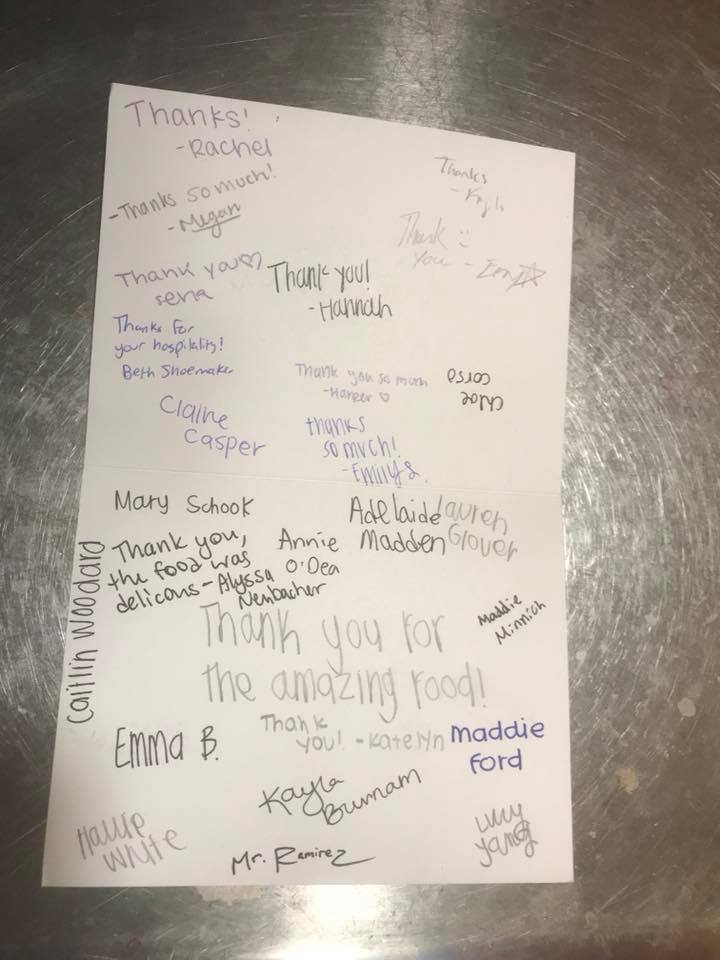 Thanks!
-Rachel
-Thanks so much!
-Megan
Thanks
Thank :)
You - Emily
Thank you♡
sena
Thank you!
-Hannah
Thanks For
your hospitality!
Beth Shoemaker
Thank you so much
-Harper ♡
chloe
corso
Claire
Casper
thanks
so much!
-Emily S.
Mary Schook
Adelaide
Madden
Lauren
Glover
Caitlin Woodard
Thank you,
the food was
delicous - Alyssa
Neubacher
Annie
O'Dea
Maddie
Minnich
Thank you for
the amazing food!
Emma B.
Thank
you! - Katelyn
Maddie
Ford
Kayla
Burnam
Hallie
White
Mr. Ramirez
Lucy